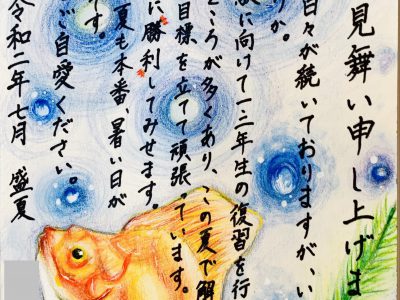 見舞い申し上げま
日々が続いておりますが、い
りか。
に向けて一、二年生の復習を行
ころが多くあり、この夏で解
目標を立てて頑張っています。
に勝利してみせます。
夏も本番、暑い日が
す。
ご自愛ください。
令和二年七月 盛夏